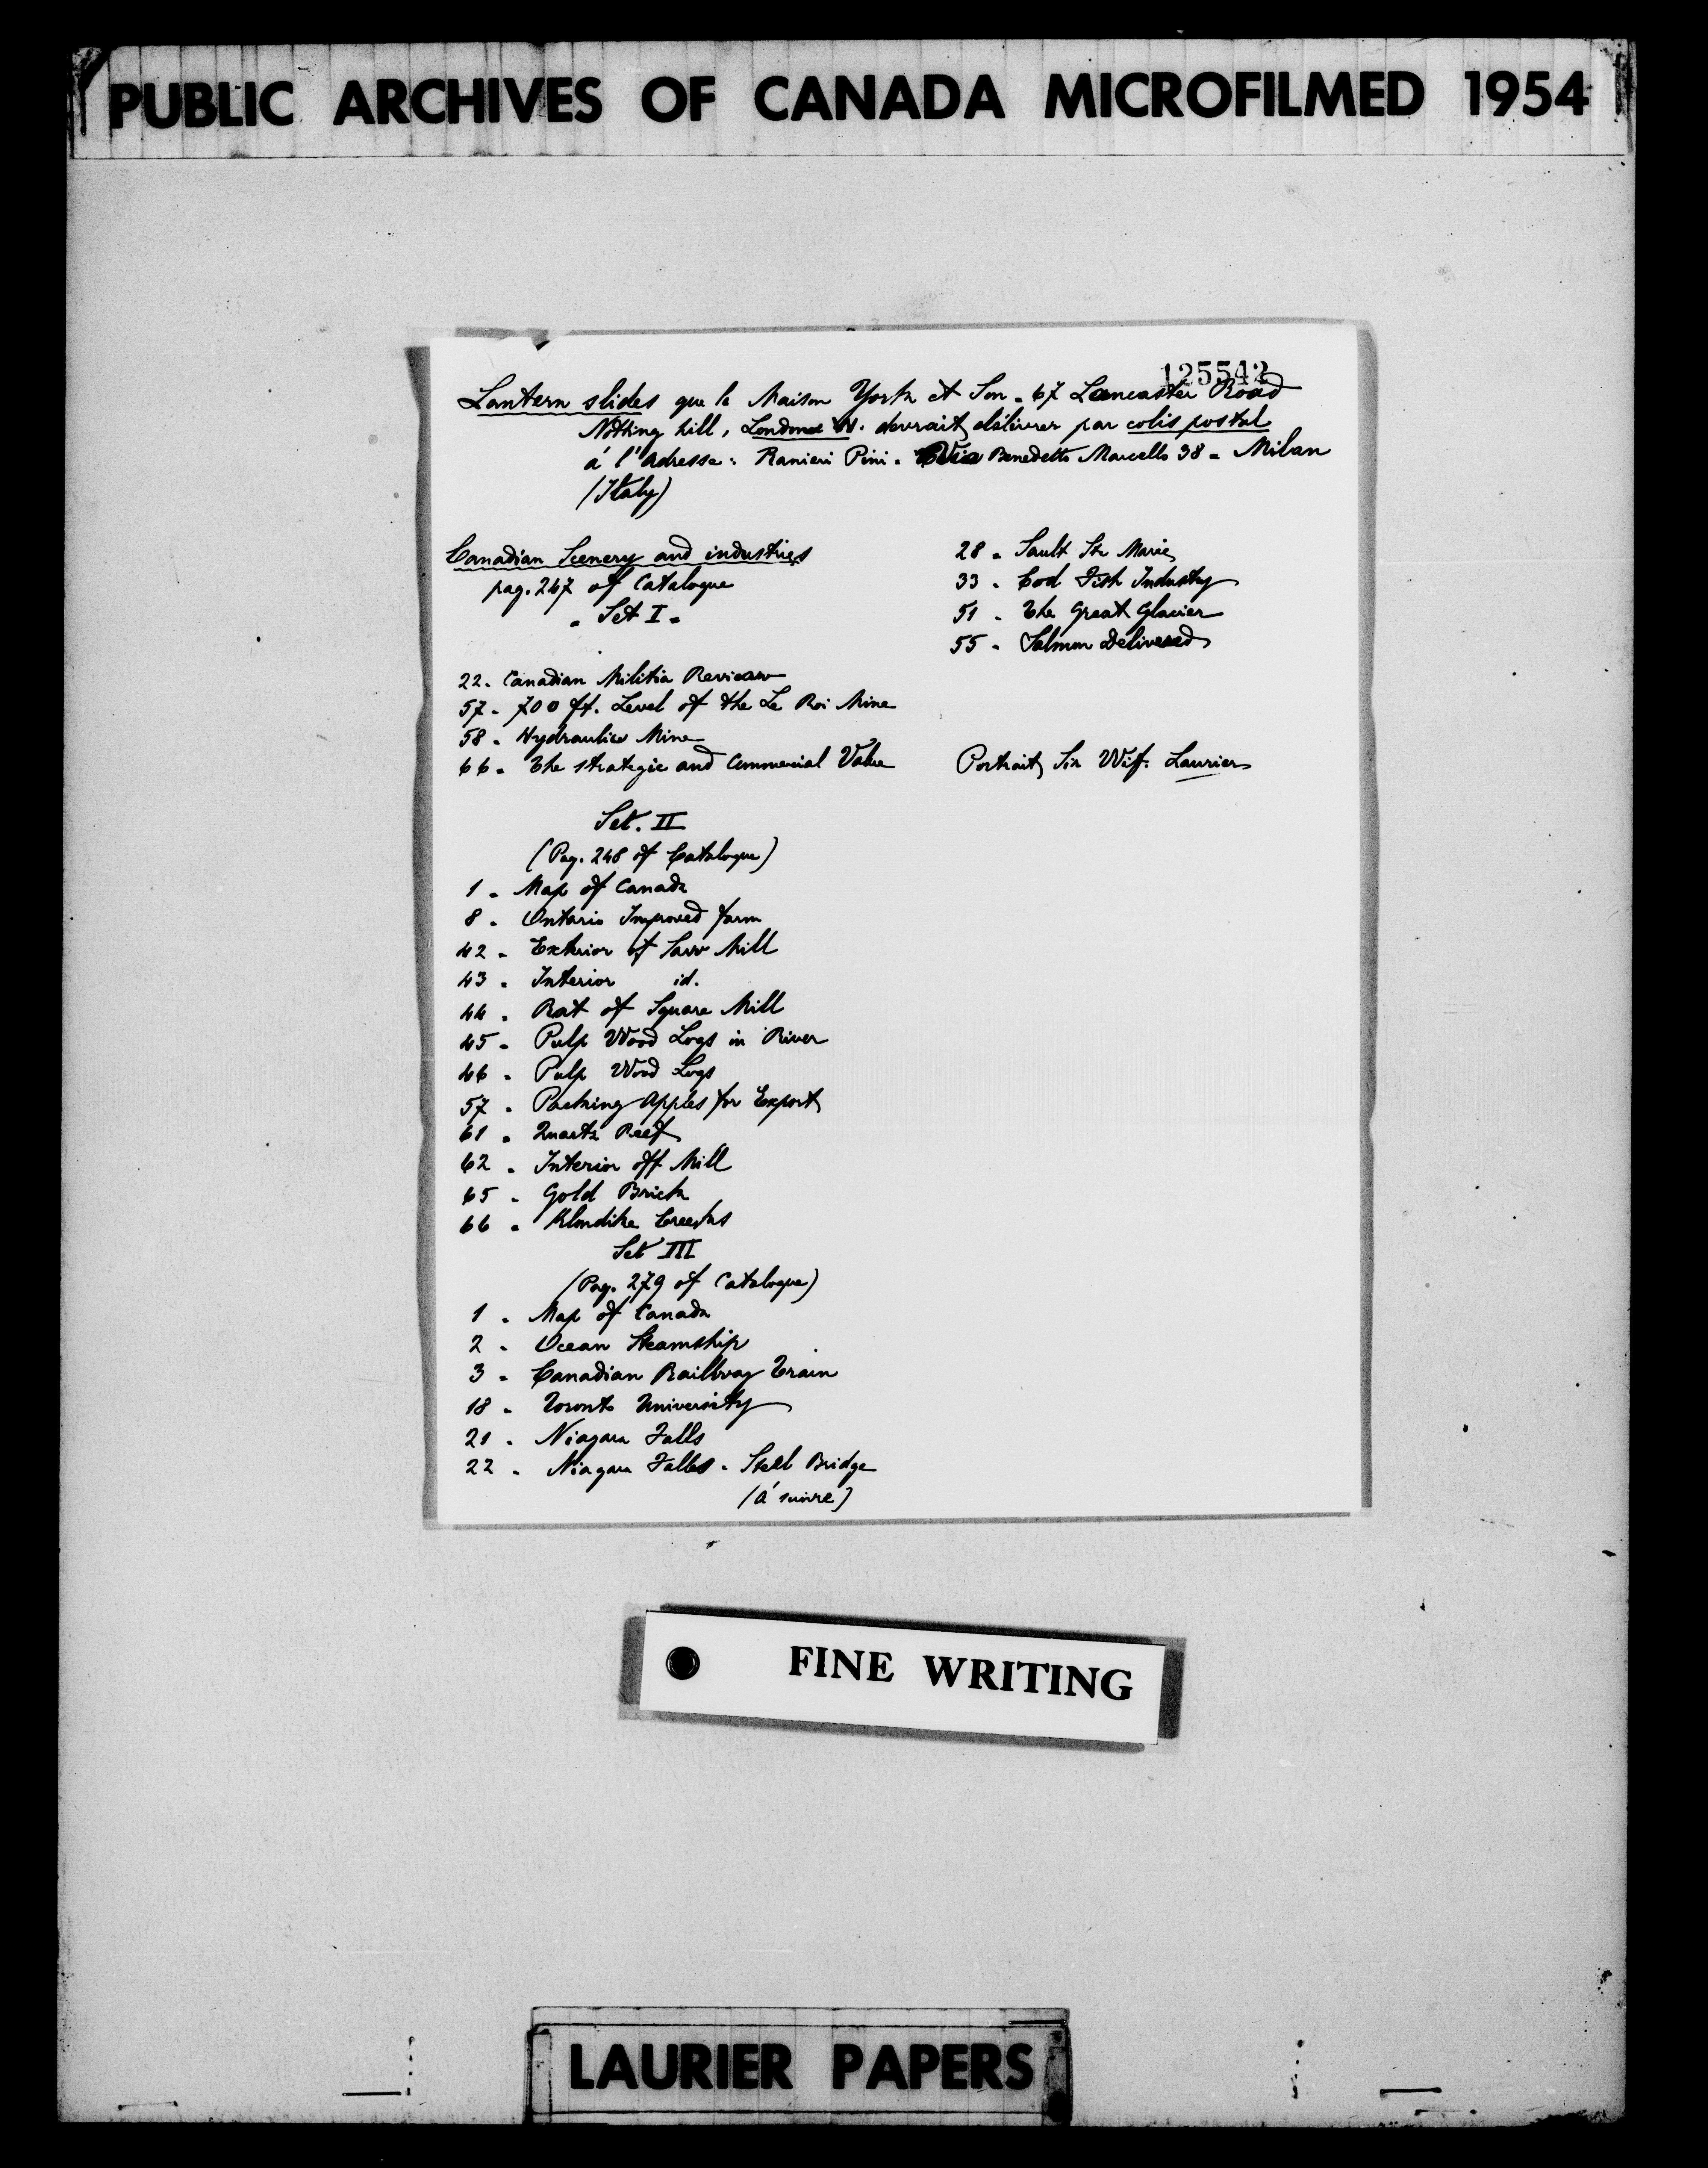 PUBLIC ARCHIVES OF CANADA MICROFILMED 1954
125542
Lantern slides que la Maison York et Son - 67 Lancaster Road
Notting hill, London W. devrait délivrer par colis postal
á l'adresse: Ranieri Pini - Via Benedetto Marcello 38 - Milan
(Italy)
Canadian Scenery and industries
pag. 247 of Catalogue
- Set I -
22 - Canadian Militia Review
57 - 700 ft. Level of the Le Roi Mine
58 - Hydraulic Mine
66 - The strategic and Commercial Value
28 - Sault Ste Marie
33 - Cod Fish Industry
51 - The Great Glacier
55 - Salmon Delivered
Portrait Sir Wif. Laurier
Set. II
(Pag. 248 of Catalogue)
1 - Map of Canada
8 - Ontario Improved farm
42 - Exterior of Saw Mill
43 - Interior id.
44 - Rat of Square Mill
45 - Pulp Wood Logs in River
46 - Pulp Wood Logs
57 - Packing Apples for Export
61 - Quartz Reef
62 - Interior off Mill
65 - Gold Brick
66 - Klondike Creeks
Set III
(Pag. 279 of Catalogue)
1 - Map of Canada
2 - Ocean Steamship
3 - Canadian Railway Train
18 - Toronto University
21 - Niagara Falls
22 - Niagara Falls - Steel Bridge
(á suivre)
FINE WRITING
LAURIER PAPERS